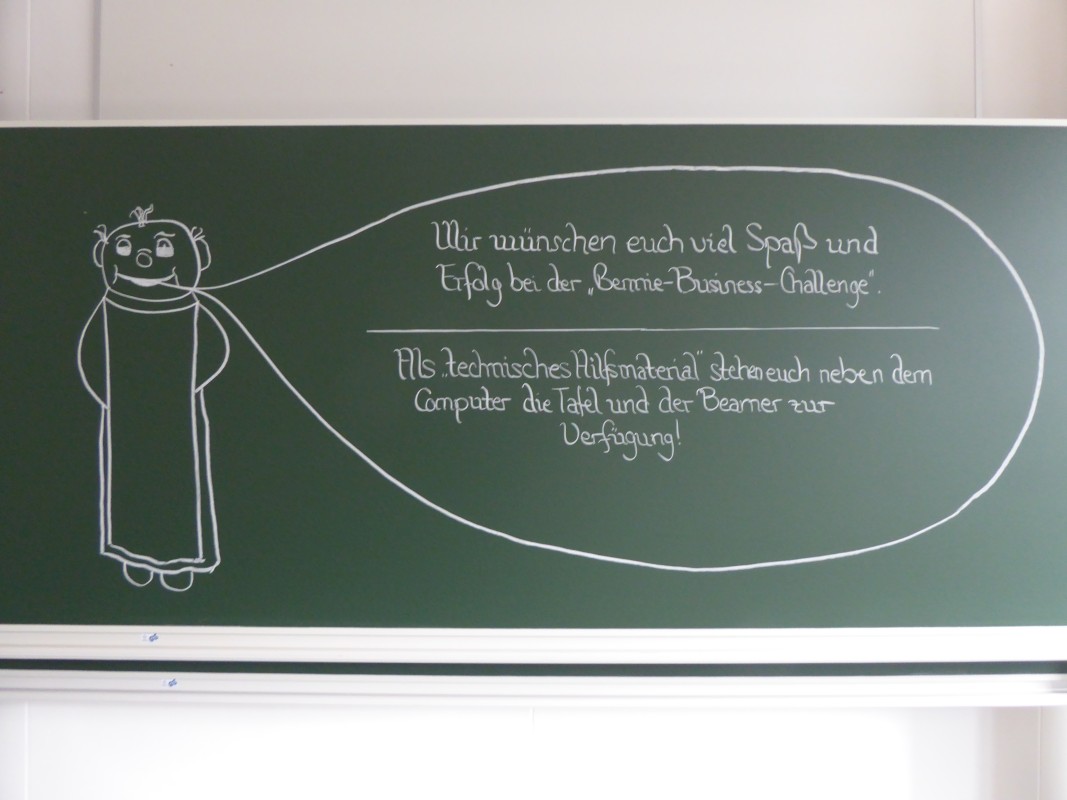 Wir wünschen euch viel Spaß und
Erfolg bei der „Bennie-Business-Challenge".
Als „technisches Hilfsmaterial" stehen euch neben dem
Computer die Tafel und der Beamer zur
Verfügung!